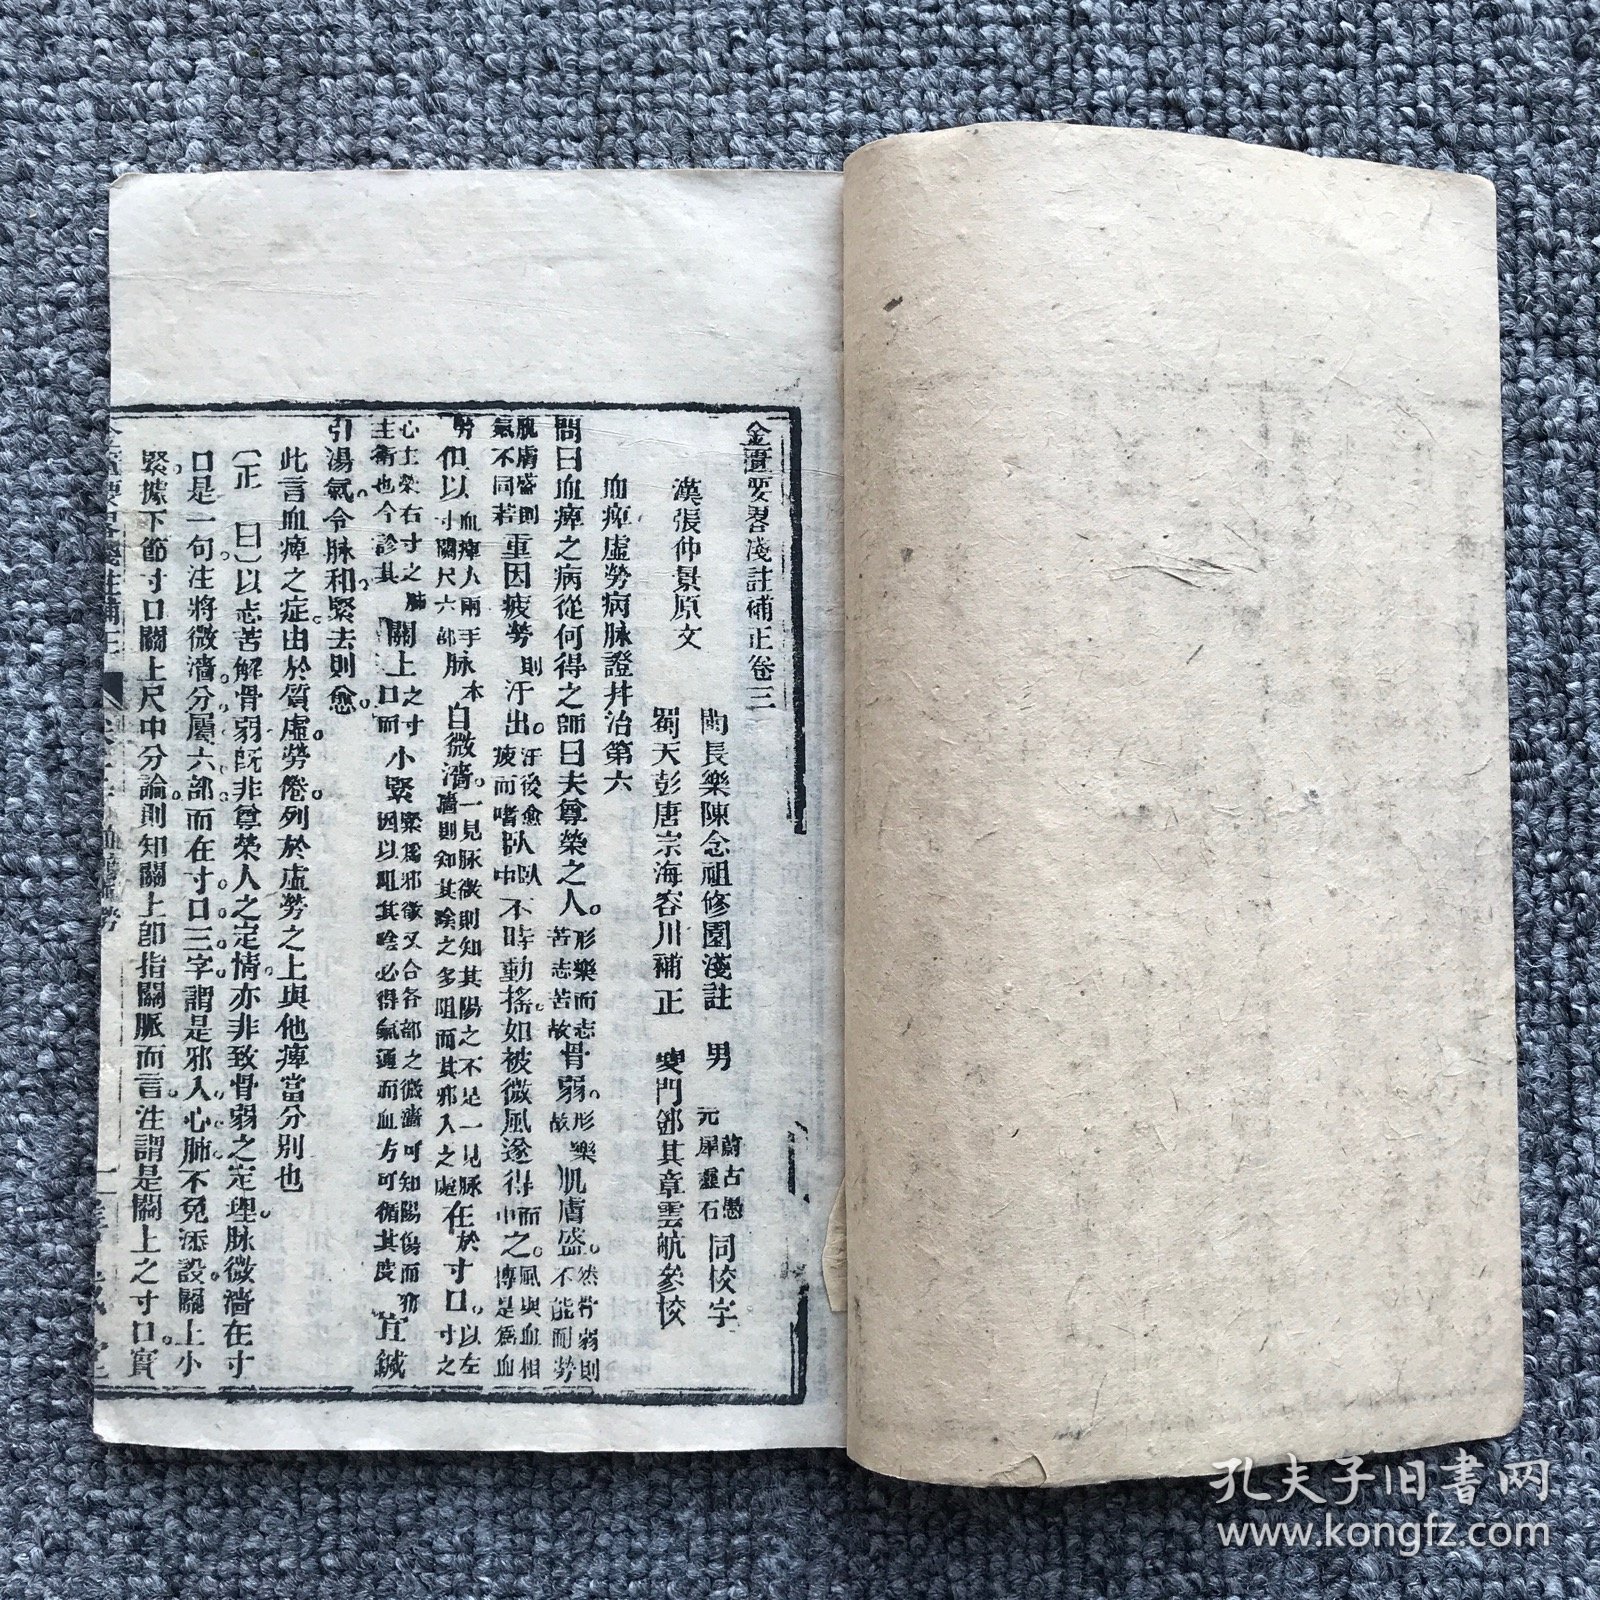 金匱要畧淺註補正卷三
漢張仲景原文
閩長樂陳念祖修園淺註 男 元犀靈石 蔚古愚 同校字
蜀天彭唐宗海容川補正 夔門鄧其章雲航參校
血痺虛勞病脉證并治第六
問曰血痺之病從何得之師曰夫尊榮之人。形樂而志苦志苦故骨弱。形樂故肌膚盛。然骨弱則不能耐勞
肌膚盛則氣不同若重因疲勞則汗出。汗後愈疲而嗜臥臥中不時動搖。如被微風遂得而中之。風與血相搏是爲血
勞但以血痺人兩手脉寸關尺六部脉本自微濇。一見脉微則知其陽之不足一見脉濇則知其陰之多阻而其邪入之處在於寸口。以左寸之
心主榮右寸之肺主衛也今診其關上之寸口而小緊緊爲邪徵又合各部之微濇可知陽傷而邪因以阻其陰必得氣通而血方可循其度宜鍼
引湯氣。令脉和。緊去則愈。
此言血痺之症。由於質虛。勞倦。列於虛勞之上與他痺當分別也
(正曰)以志苦解骨弱既非尊榮人之定情。亦非致骨弱之定理。脉微濇在寸
口是一句注將微濇分屬六部而在寸口三字謂是邪入心肺不免添設。關上小
緊。據下節寸口關上尺中分論。則知關上卽指關脈而言。注謂是關上之寸口。實
孔夫子旧書网
www.kongfz.com